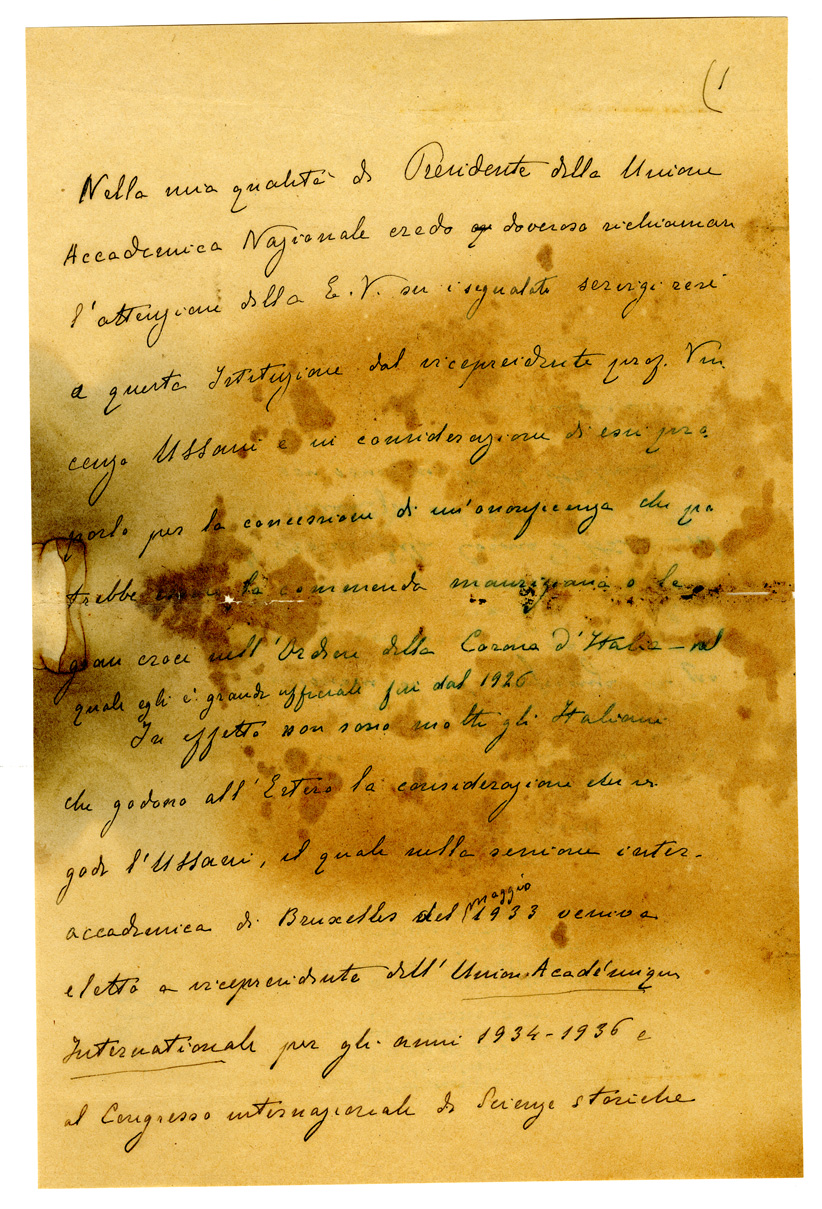 (1
Nella mia qualità di Presidente della Unione
Accademica Nazionale credo doveroso richiamare
l'attenzione della E. V. su i segnalati servigi resi
a questa Istituzione dal vicepresidente prof. Vin
cenzo Ussani e in considerazione di essi pro
porlo per la concessione di un'onorificenza che po
trebbe essere la commenda mauriziana o la
gran croce nell'Ordine della Corona d'Italia – nel
quale egli è grande ufficiale fin dal 1926
In effetto non sono molti gli Italiani
che godono all'Estero la considerazione che vi
gode l'Ussani, il quale nella sessione inter-
accademica di Bruxelles del maggio 1933 veniva
eletto a vicepresidente dell'Union Académique
Internationale per gli anni 1934-1936 e
al Congresso internazionale di Scienze storiche